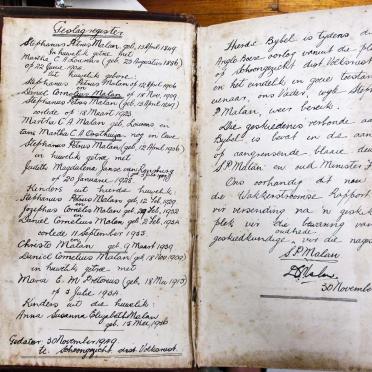 Geslagregister
Stephanus Petrus Malan geb. 13 April 1879
In huwelik getree met
Martha C A Louwser (geb. 23 Augustus 1886)
op 22 Junie 1904
Uit huwelik gebore:
Stephanus Petrus Malan op 12 April 1906
en
Daniel Cornelius Malan op 18 Nov. 1909
Stephanus Petrus Malan (geb. 13 April 1879)
oorlede op 18 Maart 1923
Martha C A Malan geb. Louwser en
tans Martha C A Oosthuizen nog in lewe
Stephanus Petrus Malan (geb. 12 April 1906)
in huwelik getree met
Judith Magdalena Janse van Rensburg
op 20 Januarie 1925
Kinders uit hierdie huwelik:
Stephanus Petrus Malan, geb. 12 Feb. 1929
Josephus Petrus Malan geb. 29 Feb. 1932
Daniel Cornelius Malan, geb. 2 Feb. 1934
oorlede 11 September 1953
en
Christo Malan geb. 17 Maart 1939
Daniel Cornelius Malan (geb. 18 Nov 1909)
in huwelik getree met
Mara E. M Pretorius (geb. 18 Mei 1913)
op 3 Julie 1934
Kinders uit die huwelik:
Anna Susanna Elizabeth Malan
geb. 15 Mei 1940
Gedateer 30 November 1949
te Schoongezicht dist Volksrust.
Hierdie Bybel is tydens die
Anglo Boere oorlog vanuit die pl
Schoongezicht dist Volksrust
en het eindelik en goeie toestan
eienaar, ons Vader, wyle Steph
P Malan, weer bereik.
Die geskiedenis verbonde aan
Bybel is bevat in die aan
op aangrensende blaaie deu
S.P Malan en oud Minister J
Ons oorhandig dit nou
die Wakkerstroomse Rapport
vir versending na 'n geskik
plek vir die bewaring van
oudhede
geskiedkundige vir die nages
S.P Malan
30 November